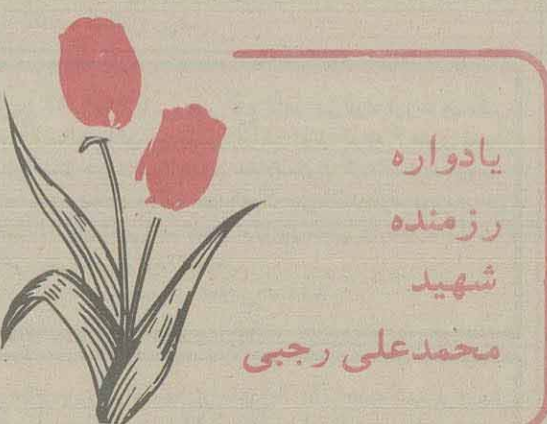 یادواره
رزمنده
شهید
محمدعلی رجبی